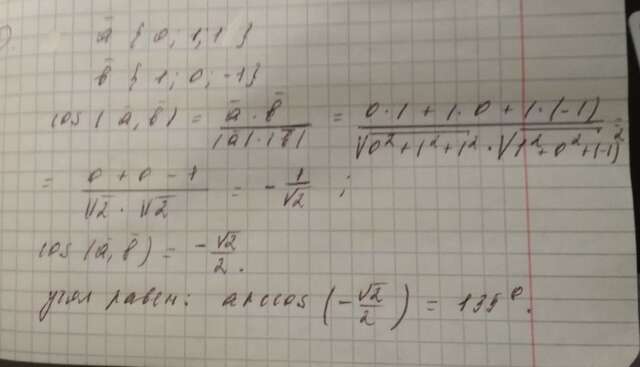 ) ā { 0; 1; 1 }
b̄ { 1; 0; -1}
cos (ā, b̄) = ā · b̄ / |ā| · |b̄| = 0 · 1 + 1 · 0 + 1 · (-1) / √0² + 1² + 1² · √1² + 0² + (-1)² =
= 0 + 0 - 1 / √2 · √2 = - 1/√2 ;
cos (ā, b̄) = - √2/2 .
угол равен: arccos (- √2/2) = 135⁰.